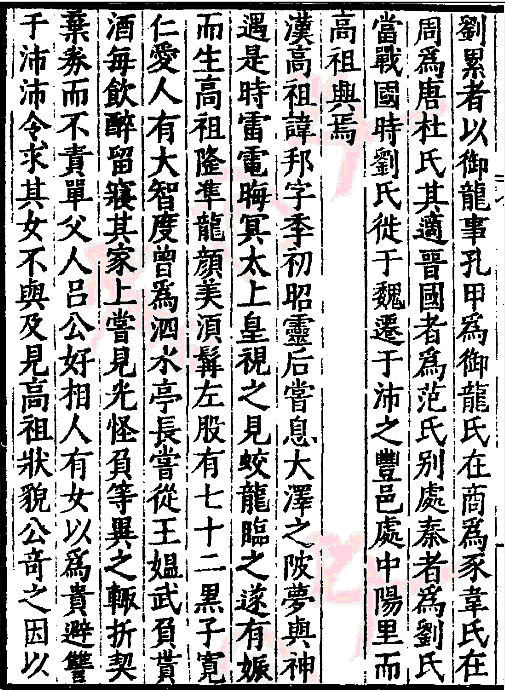 劉累者以御龍事孔甲為御龍氏在商為豕韋氏在
周為唐杜氏其適晉國者為范氏别處秦者為劉氏
當戰國時劉氏徙于魏遷于沛之豐邑處中陽里而
高祖興焉
漢高祖諱邦字季初昭靈后嘗息大澤之陂夢與神
遇是時雷電晦冥太上皇視之見蛟龍臨之遂有娠
而生高祖隆準龍顔美須髯左股有七十二黒子寛
仁愛人有大智度曾為泗水亭長嘗從王媪武負貰
酒每飲醉留寢其家上嘗見光怪負等異之輙折契
棄券而不責單父人吕公好相人有女以為貴避讐
于沛沛令求其女不與及見高祖狀貌公竒之因以